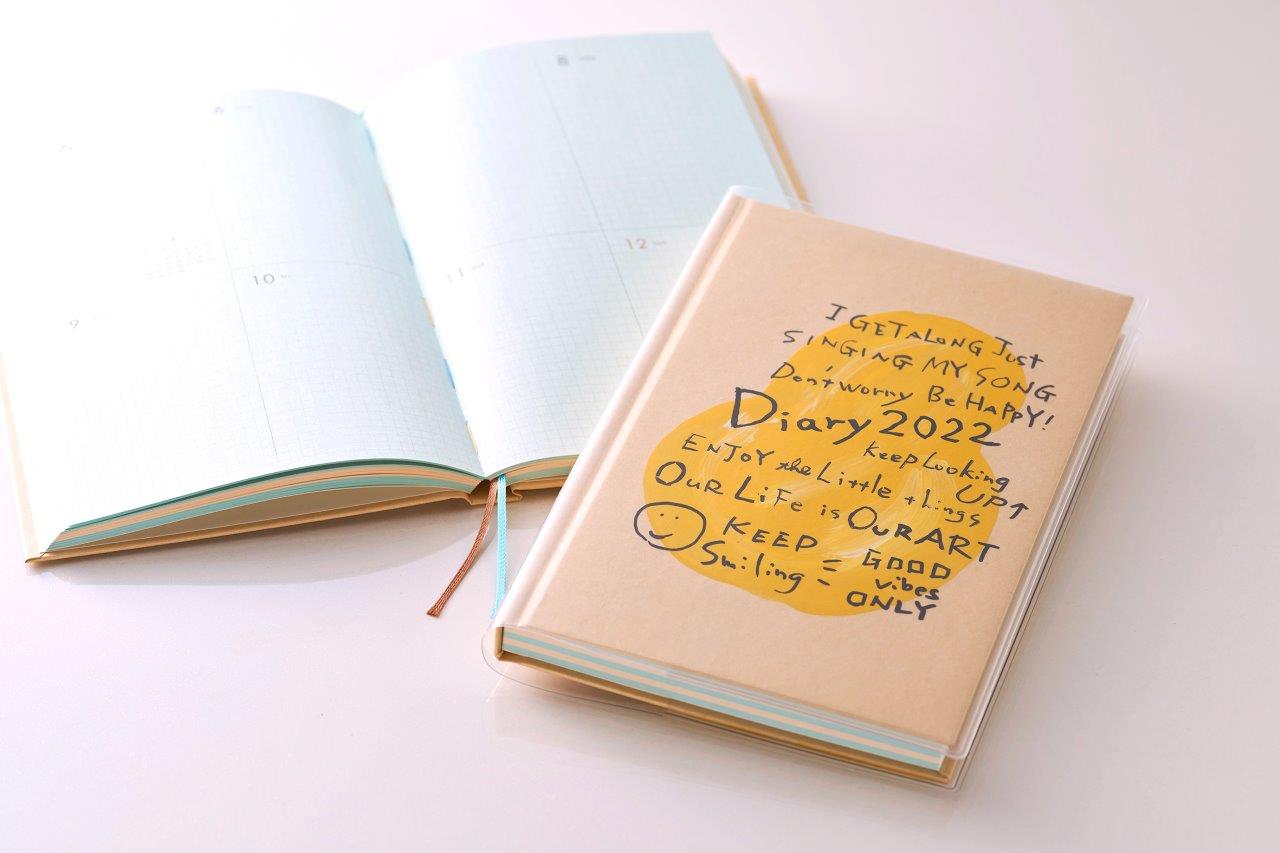 I GET ALONG Just
SINGING MY SONG
Don't worry Be HAPPY!
Diary 2022
Keep Looking
UP↑
ENJOY the Little things
OUR LiFe is OUR ART
KEEP
Smiling
GOOD
vibes
ONLY
9
10
11
12